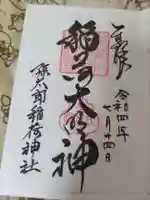 令和四年
七月十四日
稲荷大明神
孫太郎稲荷神社